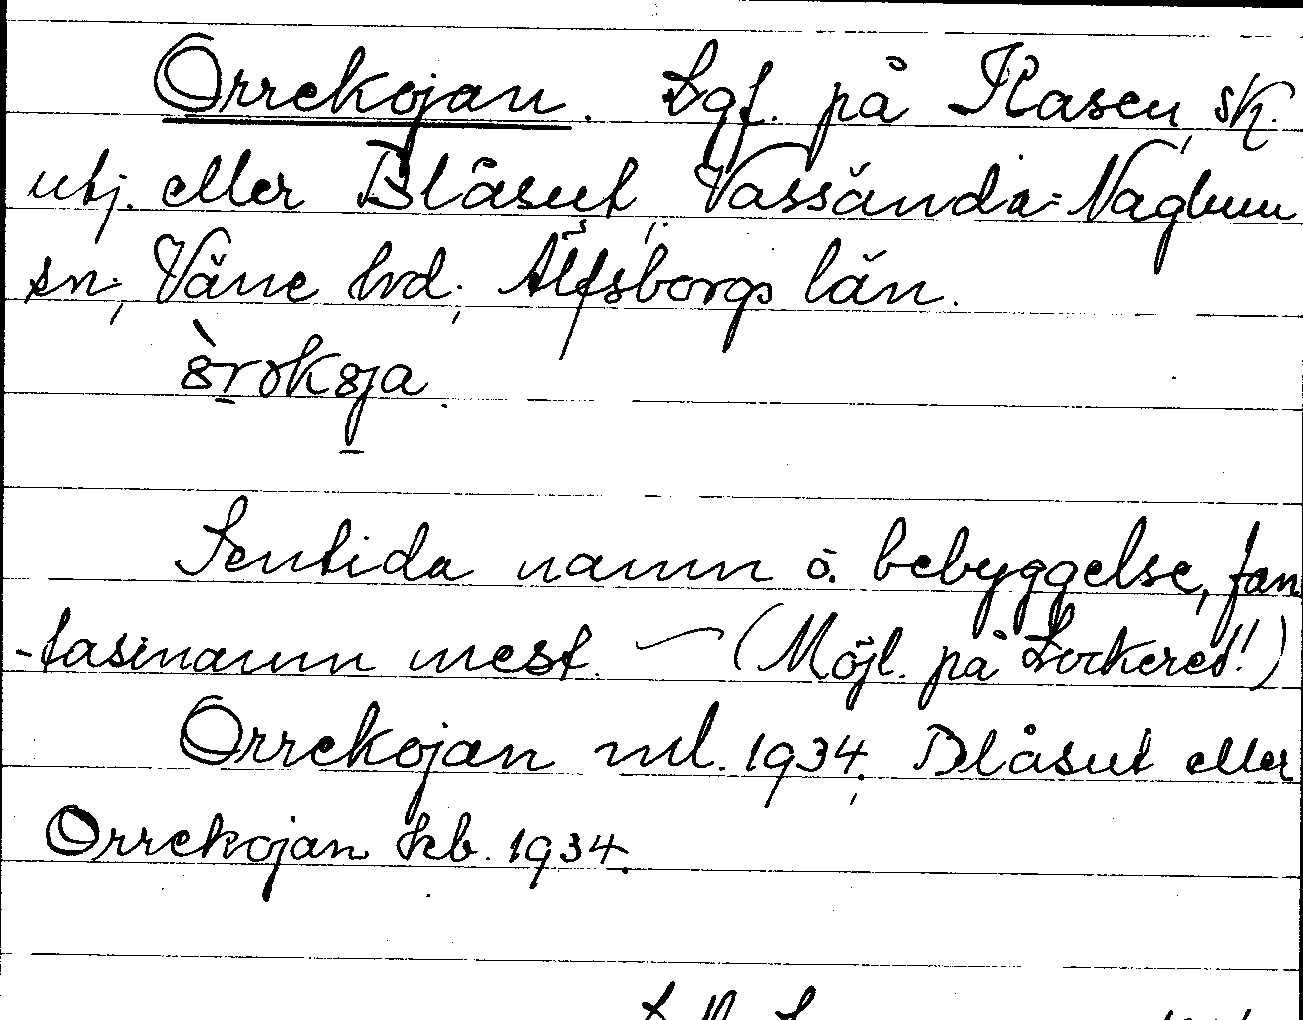 Orrekojan. Lgf. på Kasen, sk.
utj. eller Blåsut, Vassända-Naglum
sn; Väne hd; Älfsborgs län.
Sentida namn o. bebyggelse, fan
-tasinamn mest. – (Möjl. på Lockered!!)
Orrekojan ml. 1934; Blåsut eller
Orrekojan kb. 1934.